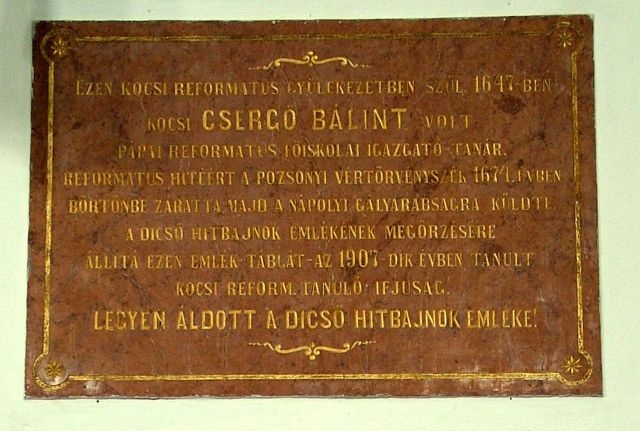 EZEN KOCSI REFORMATUS GYÜLEKEZETBEN SZÜL. 1647-BEN
KOCSI CSERGŐ BÁLINT VOLT
PÁPAI REFORMATUS FŐISKOLAI IGAZGATÓ-TANÁR.
REFORMATUS HITÉÉRT A POZSONYI VÉRTÖRVÉNYSZÉK 1674. ÉVBEN
BÖRTÖNBE ZÁRATTA MAJD A NÁPOLYI GÁLYARABSÁGRA KÜLDTE.
A DICSŐ HITBAJNOK EMLÉKÉNEK MEGŐRZÉSÉRE
ÁLLITÁ EZEN EMLÉK-TÁBLÁT-AZ 1907-DIK ÉVBEN TANULT
KOCSI REFORM. TANULÓ IFJUSÁG.
LEGYEN ÁLDOTT A DICSŐ HITBAJNOK EMLÉKE!